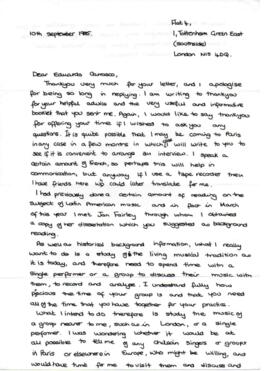 Flat 4,
10th September 1985.
1, Tottenham Green East
(Southside)
London N15 4DQ.
Dear Eduardo Carrasco,
Thankyou very much for your letter, and I apologise
for being so long in replying. I am writing to thankyou
for your helpful advice and the very useful and informative
booklet that you sent me. Again, I would like to say thankyou
for offering your time if I wished to ask you any
questions. It is quite possible that I may be coming to Paris
in any case in a few months in which I will write to you to
see if it is convenient to arrange an interview. I speak a
certain amount of French, so perhaps this will help in
communication, but anyway if I use a tape recorder then
I have friends here who could later translate for me.
I had previously done a certain amount of reading on the
subject of Latin American music and in fact in March
of this year I met Jan Fairley through whom I obtained
a copy of her dissertation which you suggested as background
reading.
As well as historical background information, what I really
want to do is a study of the living musical tradition as
it is today, and therefore need to spend time with a
single performer or a group to discuss their music with
them, to record and analyse. I understand fully how
precious the time of your group is and that you need
all of the time that you have together for your practise.
What I intend to do therefore is study the music of
a group nearer to me, such as in London, or a single
performer. I was wondering whether it would be at
all possible to tell me of any Andean singers or groups
in Paris or elsewhere in Europe, who might be willing, and
would have time for me to visit them and discuss and